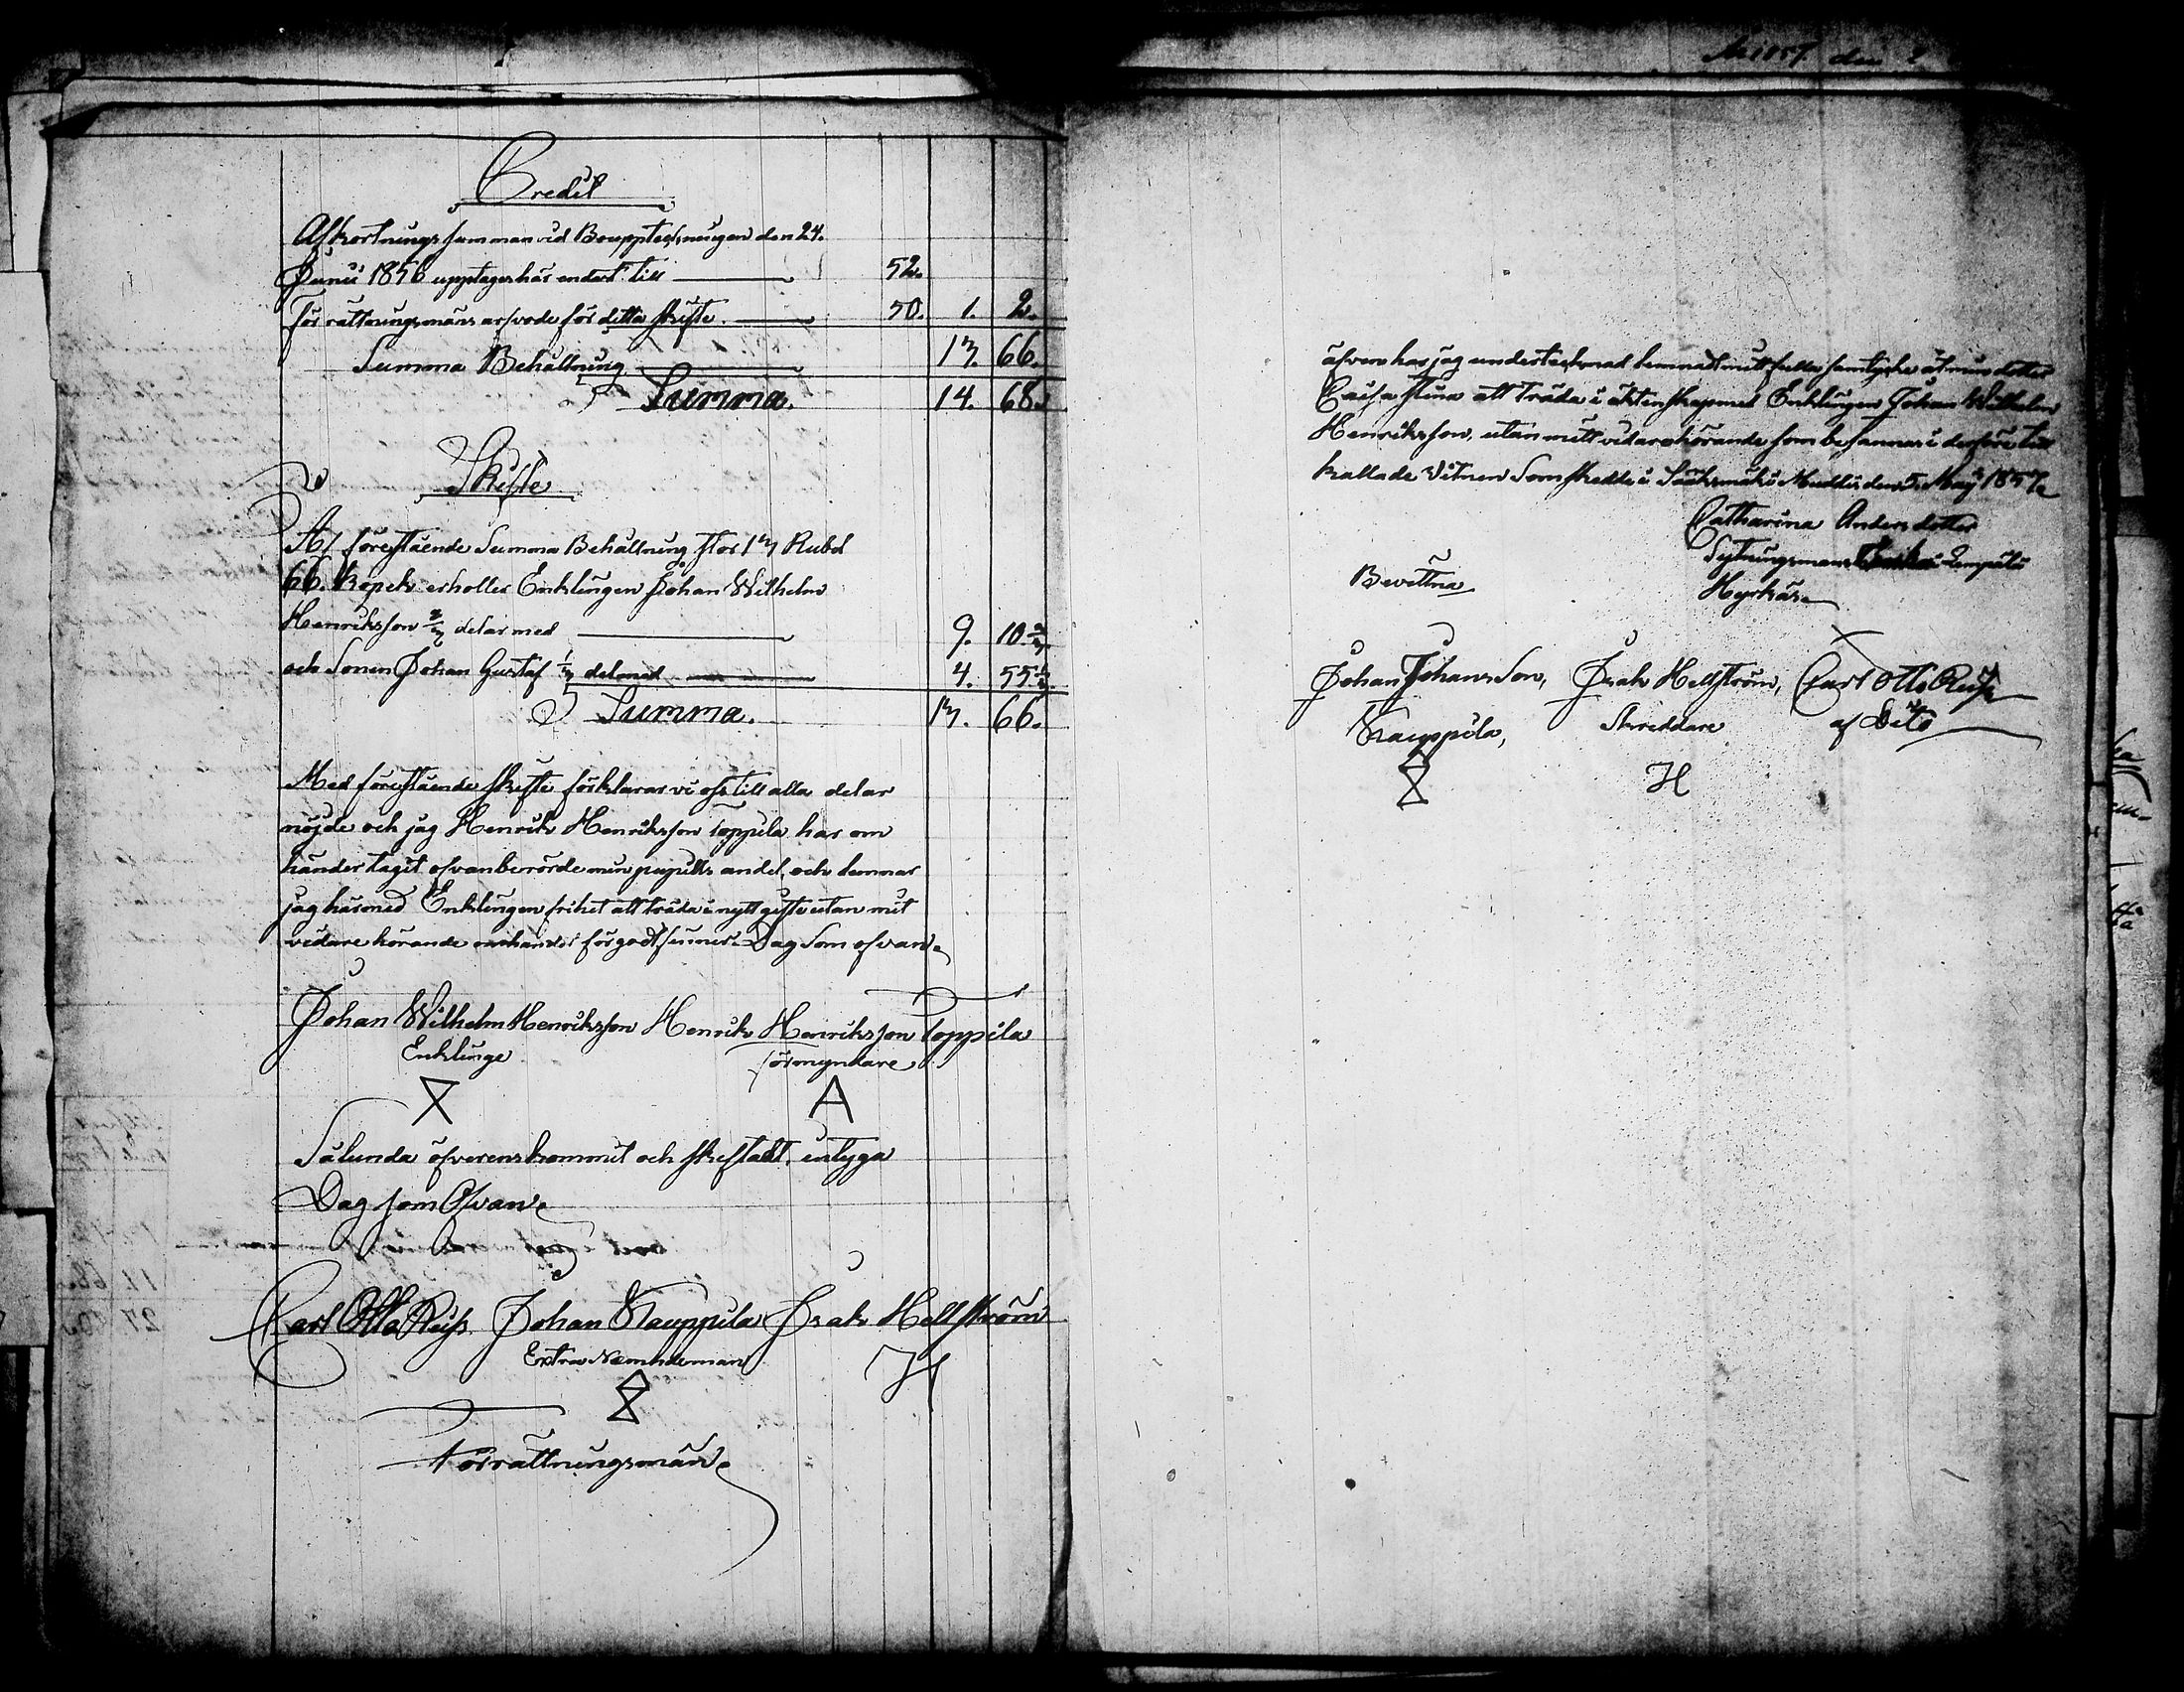 Credit
Afkortnings summan vid Bouppteckningen den 24.
Junii 1856 upptages här endast till 52.
förrättningsmäns arfvode för detta skifte. 50. 1. 2.
Summa Behållning 13. 66.
Summa. 14. 68.
Skifte
Af förestående Summa Behållning stor 13 Rubel
66. Kopek erholler Enklingen Johan Wilhelm
Henriksson 2/3 delar med 9. 10 2/3.
och Sonen Johan Gustaf 1/3 del med 4. 55 1/3.
Summa. 13. 66.
Med förestående skifte förklarar vi oss till alla delar
nöjde och jag Henrik Henriksson Toppila har om
händer tagit ofvanberörde min pupills andel, och lemnar
jag härmed Enklingen frihet att träda i nytt gifte utan mit
vidare hörande för godt finner. Dag Som ofvan.
Johan Wilhelm Henriksson Henrik Henriksson Toppila
Enklinge förmyndare
X A
Sålunda öfverenskommit och skiftadt, intyga
Dag som Ofvan.
Carl Otto Johan Kauppila Isak Hellström
Extra Nämndeman H
Förrättningsmän.
den
äfven har jag undertecknad lemnadt mitt fulla samtycke åt min dotter
Caisa Stina att träda i äktenskap med Enklingen Johan Wilhelm
Henriksson, utan mitt vidare hörande som besannas i derföre till
kallade Vitnen Som skedde i Sääksmäki den 5. Maij 1857.
Catharina Anders dotter
Bevittna
Johan Johans Son, Isak Hellström, Carl Otto
Kauppila, Skreddare af Dito
H